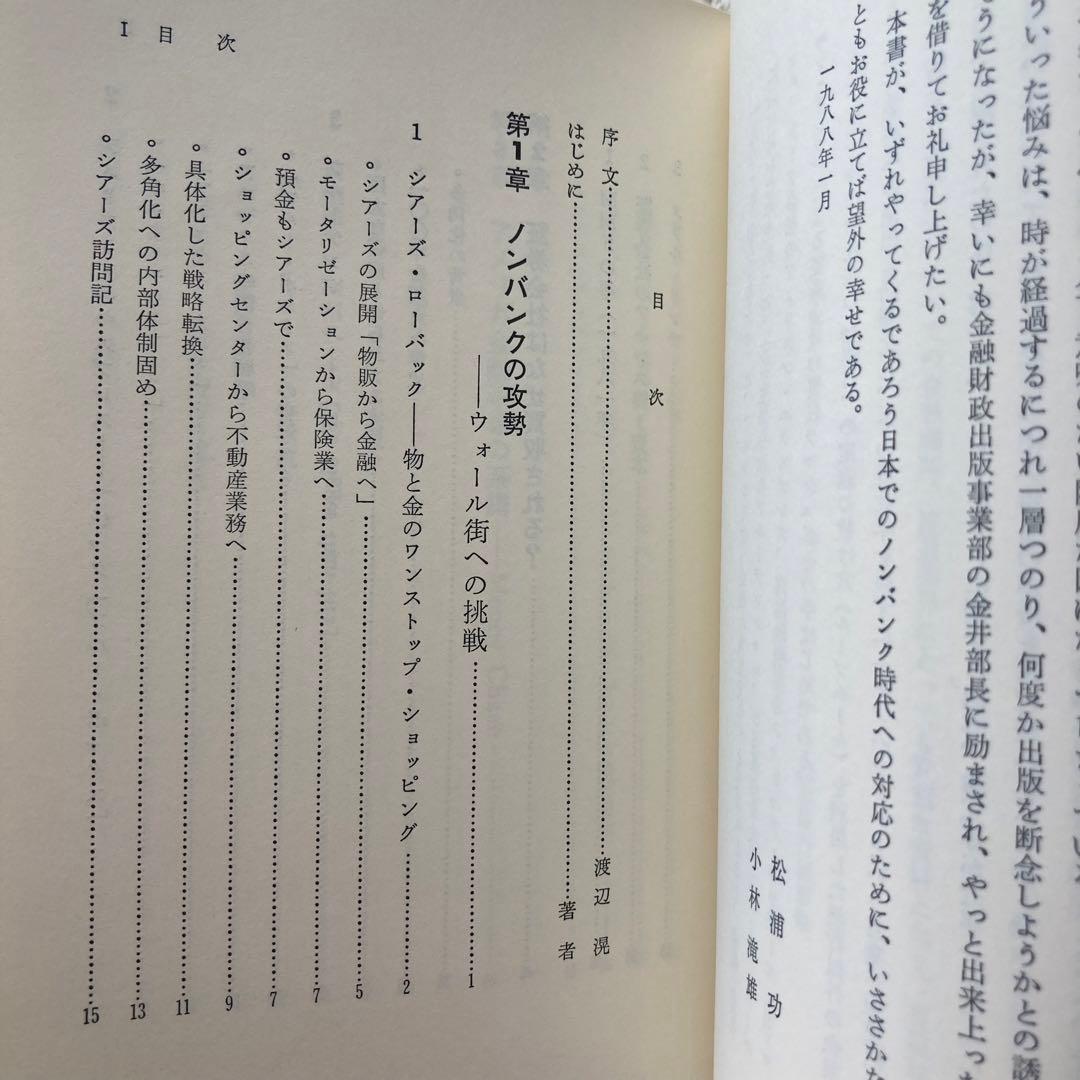 ういった悩みは、時が経過するにつれ一層つのり、何度か出版を断念しようかとの誘
うになったが、幸いにも金融財政出版事業部の金井部長に励まされ、やっと出来上った
を借りてお礼申し上げたい。
本書が、いずれやってくるであろう日本でのノンバンク時代への対応のために、いささかな
ともお役に立てば望外の幸せである。
一九八八年一月
松浦 功
小林 滝雄
目 次
序 文……渡辺 滉
はじめに……著 者
第1章 ノンバンクの攻勢
――ウォール街への挑戦……1
1 シアーズ・ローバック――物と金のワンストップ・ショッピング……2
○シアーズの展開「物販から金融へ」……5
○モータリゼーションから保険業へ……7
○預金もシアーズで……7
○ショッピングセンターから不動産業務へ……9
○具体化した戦略転換……11
○多角化への内部体制固め……13
○シアーズ訪問記……15
I 目 次